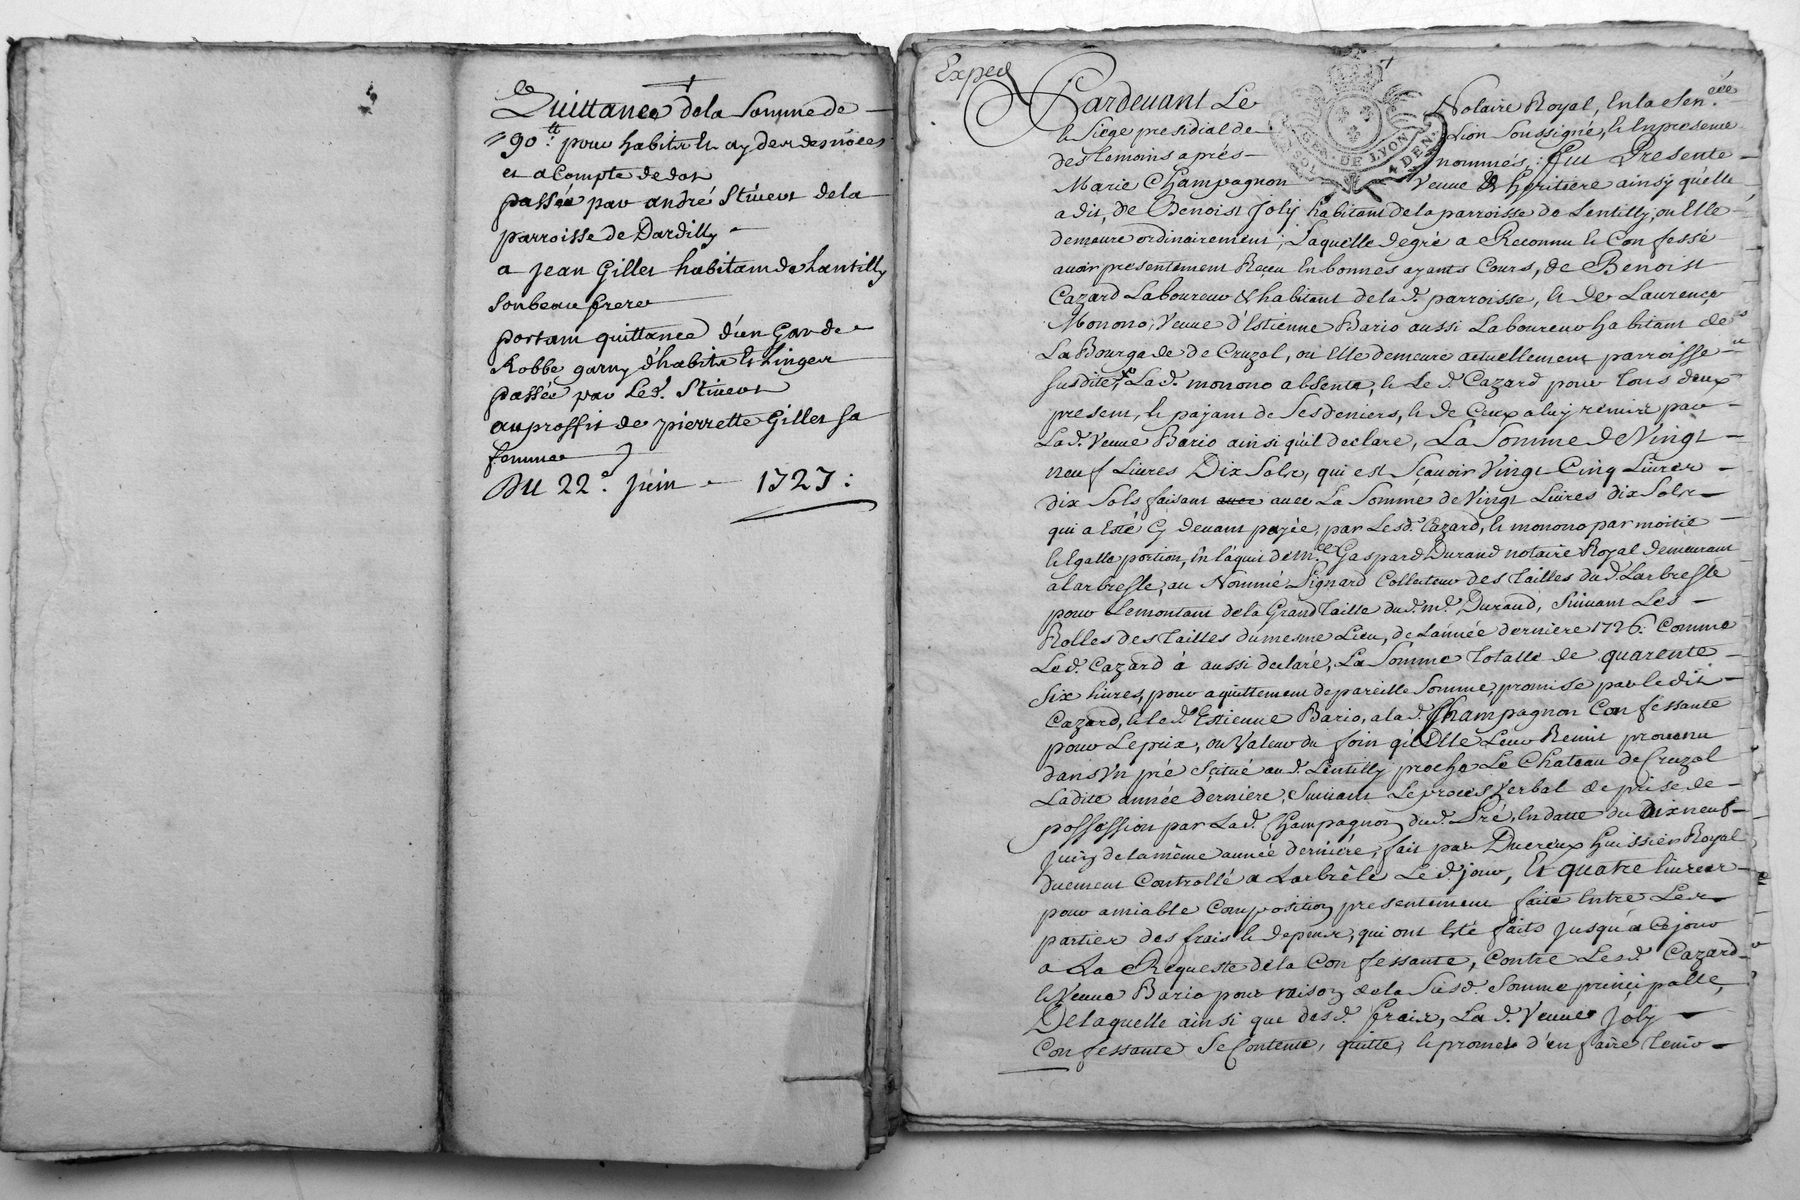 Quittance dela Somme de
90.tt pour habits et
et acompte de dot
passée par andré Stiuent dela
parroisse de Dardilly
a jean Gillet habitant de Lantilly
Son beau frere
portant quittance d'un Garde
Robbe garny d'habits et Linges
passée par Led. Stiuent
au proffit de pierrette Gillet sa
femme
Du 22e. juin 1727:
Exped
Pardeuant Le Notaire Royal, En la Sen.ée
& Siege presidial de Lion Soussigné, & En presence
des temoins aprés nommés, fut Presente
Marie Champagnon Veuve & heritiere ainsy qu'elle
a dit, de Benoist Joly habitant de la parroisse de Lentilly, ou Elle
demeure ordinairement; Laquelle de gré a Reconnu & Confessé
auoir presentement Reçeu En bonnes ayants Cours, de Benoist
Cazard Laboureur & habitant de lad. parroisse, & de Laurence
Monono, Veuue d'Estienne Bario aussi Laboureur habitant de
La Bourgade de Cruzol, ou Elle demeure actuellement parroisse
susdite, Lad. monono absente, & Le d. Cazard pour tous deux
present, & payant de Ses deniers, & de Ceux a luy remis par
Lad. Veuue Bario ainsi quil declare, La Somme de Vingt
neuf Liures Dix Sols, qui est Sçauoir Vingt Cinq Liures
dix Sols faisant auec auec La Somme de Vingt Liures dix Sols
qui a Esté Cy deuant payée, par Lesd. Cazard, & monono par moitié
& Egalle portion, En l'aquit de m.e Gaspard Durand notaire Royal demeurant
a larbresle, au Nommé Signard Collecteur des tailles dud. Larbresle
pour Le montant de la Grand taille dud. m.e Durand, Suiuant Les
Rolles des tailles du mesme Lieu, de L'année derniere 1726. Comme
Led. Cazard à aussi declaré, La Somme totalle de quarente
Six liures, pour aquittement de pareille Somme, promise par ledit
Cazard, & led. Estienne Bario, a lad. Champagnon Confessante
pour Le prix, ou Valeur du foin qu'Elle Leur Remit prouenu
dans Vn pré Scitué aud. Lentilly proche Le Chateau de Cruzol
Ladite année derniere, Suiuant Le procés Verbal de prise de
possession par Lad. Champagnon dud. Pré, En datte du Dixneuf
Juin de la même année derniére, fait par Ducreux Huissier Royal
duement Controllé a Larbréle Led. jour, Et quatre liures
pour amiable Composition presentement faite Entre Les
parties des frais & depens, qui ont Esté faits Jusqu'a Ce jour
a La Requeste de la Confessante, Contre Lesd. Cazard
& Veuue Bario pour raison de la Susd. Somme principalle,
De laquelle ainsi que desd. fraix, La d. Veuue Joly
Confessante Se Contente, quitte, & promet d'en faire tenir